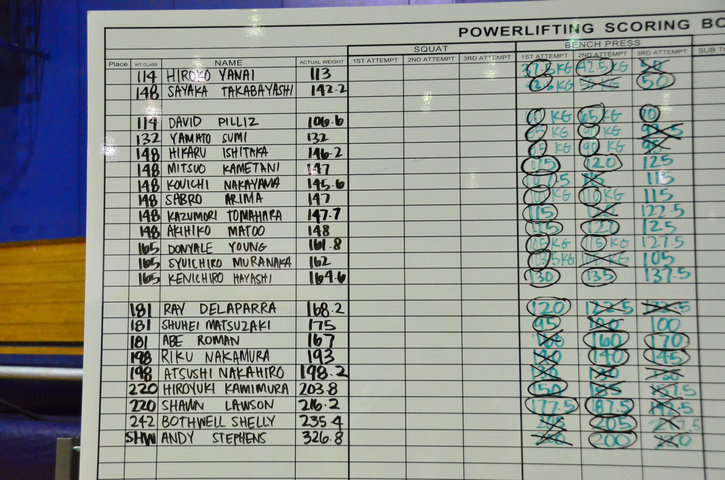 POWERLIFTING SCORING BO
SQUAT BENCH PRESS
Place WT. CLASS NAME ACTUAL WEIGHT 1ST ATTEMPT 2ND ATTEMPT 3RD ATTEMPT 1ST ATTEMPT 2ND ATTEMPT 3RD ATTEMPT SUB T
114 HIROKO YANAI 113 37.5 KG 42.5 KG 50
148 SAYAKA TAKABAYASHI 142.2 KG KG 50
114 DAVID PILLIZ 106.6 KG 65 KG 70
132 YAMATO SUMI 132 KG 90 KG
148 HIKARU ISHITAKA 146.2 KG 90 KG
148 MITSUO KAMETANI 147 115 120 125
148 KOUICHI NAKAYAMA 145.6 115
148 SABRO ARIMA 147 KG 110 KG 115
148 KAZUMORI TOMAHARA 147.7 115 122.5
148 AKIHIKO MATOO 148 115 125
165 DONYALE YOUNG 161.8 105 KG 115 KG 127.5
165 SYUICHIRO MURANAKA 162 KG KG 105
165 KENICHIRO HAYASHI 164.6 130 135 137.5
181 RAY DELAPARRA 168.2 120 122.5
181 SHUHEI MATSUZAKI 175 95 100 100
181 ABE ROMAN 167 160 170
198 RIKU NAKAMURA 193 140 140 145
198 ATSUSHI NAKAHIRO 198.2
220 HIROYUKI KAMIMURA 203.8 150
220 SHAWN LAWSON 216.2 177.5 187.5
242 BOTHWELL SHELLY 235.4 205
SHW ANDY STEPHENS 326.8 200